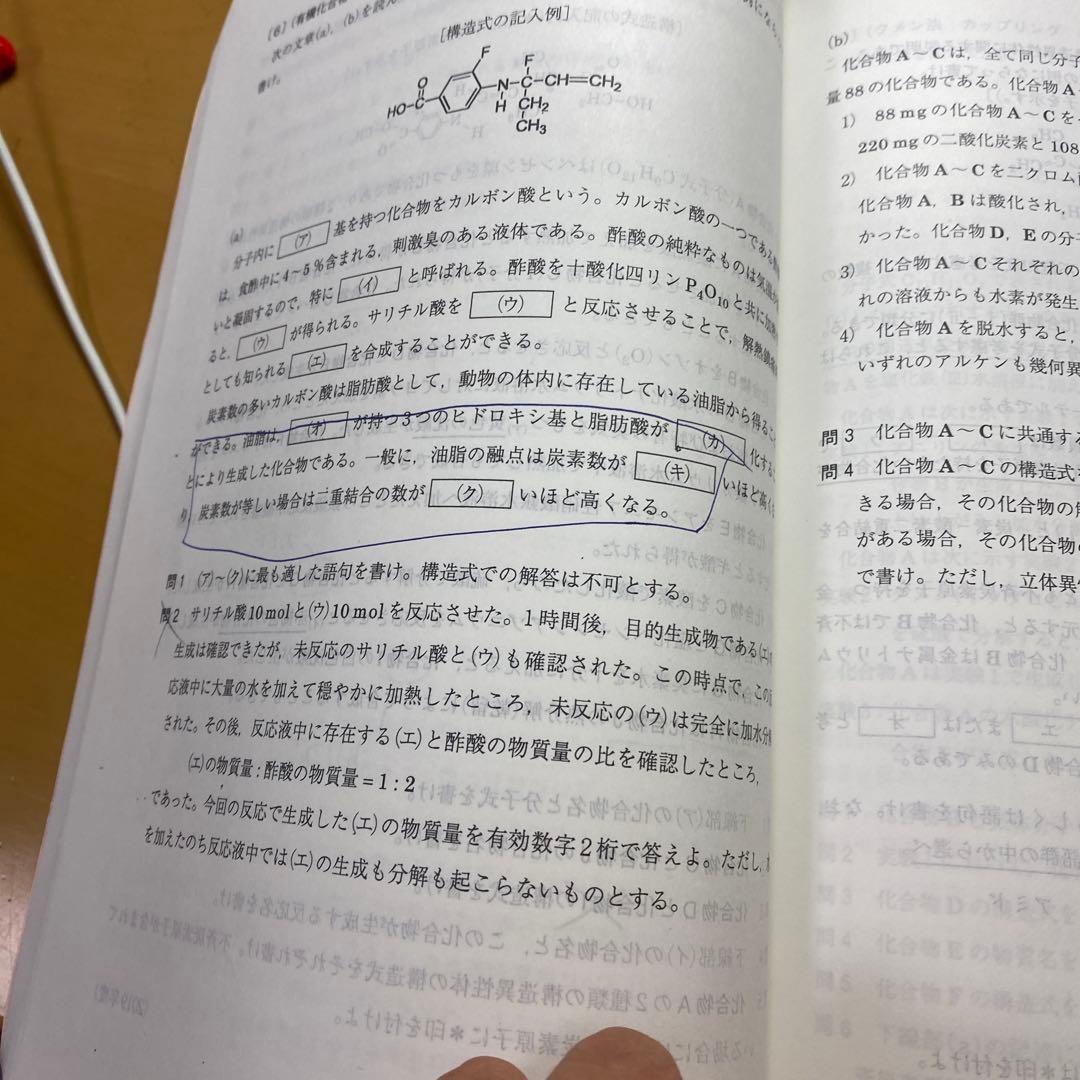 [6] (有機化合物
次の文章(a), (b)を読ん
書け。
[構造式の記入例]
F
F
HO-C
O
N
H
C-CH=CH₂
CH₂
CH₃
(a)
分子内に (ア) 基を持つ化合物をカルボン酸という。カルボン酸の一つである
は, 食酢中に4～5%含まれる, 刺激臭のある液体である。酢酸の純粋なものは気温が
いと凝固するので, 特に (イ) と呼ばれる。酢酸を十酸化四リンP₄O₁₀と共に加熱
ると, (ウ) が得られる。サリチル酸を (ウ) と反応させることで, 解熱鎮痛
としても知られる (エ) を合成することができる。
炭素数の多いカルボン酸は脂肪酸として, 動物の体内に存在している油脂から得るこ
ができる。油脂は, (オ) が持つ3つのヒドロキシ基と脂肪酸が (カ) 化する
とにより生成した化合物である。一般に, 油脂の融点は炭素数が (キ) いほど高く
り, 炭素数が等しい場合は二重結合の数が (ク) いほど高くなる。
問1 (ア)～(ク)に最も適した語句を書け。構造式での解答は不可とする。
問2 サリチル酸10molと(ウ)10molを反応させた。1時間後, 目的生成物である(エ)
生成は確認できたが, 未反応のサリチル酸と(ウ)も確認された。この時点で, この
応液中に大量の水を加えて穏やかに加熱したところ, 未反応の(ウ)は完全に加水分
された。その後, 反応液中に存在する(エ)と酢酸の物質量の比を確認したところ,
(エ)の物質量:酢酸の物質量=1:2
であった。今回の反応で生成した(エ)の物質量を有効数字2桁で答えよ。ただし,
を加えたのち反応液中では(エ)の生成も分解も起こらないものとする。
(b)
化合物A～Cは, 全て同じ分子
量88の化合物である。化合物A
1) 88mgの化合物A～Cを
220mgの二酸化炭素と108
2) 化合物A～Cを二クロム
化合物A, Bは酸化され,
かった。化合物D, Eの分
3) 化合物A～Cそれぞれの
れの溶液からも水素が発生
4) 化合物Aを脱水すると,
いずれのアルケンも幾何異
問3 化合物A～Cに共通する
問4 化合物A～Cの構造式
きる場合, その化合物の
がある場合, その化合物の
で書け。ただし, 立体異